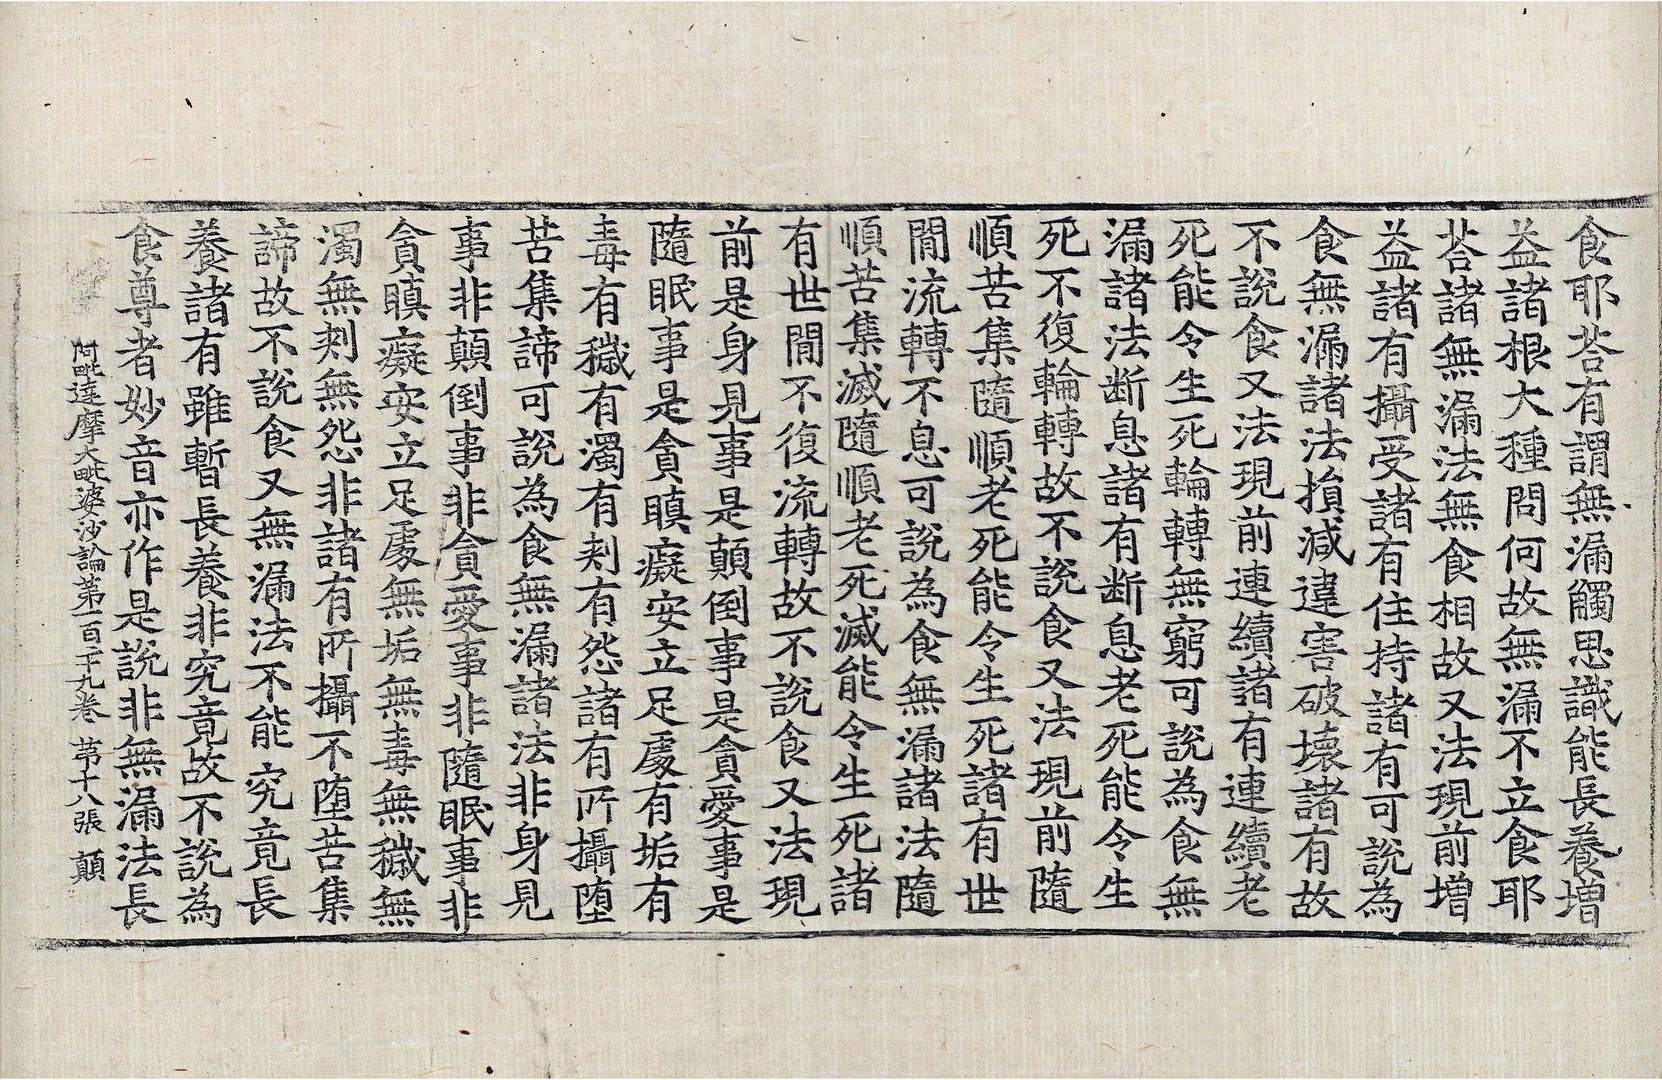 食耶荅有謂無漏觸思識能長養增
益諸根大種問何故無漏不立食耶
荅諸無漏法無食相故又法現前增
益諸有攝受諸有住持諸有可說為
食無漏諸法損減違害破壞諸有故
不說食又法現前連續諸有連續老
死能令生死輪轉無窮可說為食無
漏諸法断息諸有断息老死能令生
死不復輪轉故不說食又法現前隨
順苦集隨順老死能令生死諸有世
間流轉不息可說為食無漏諸法隨
順苦集滅隨順老死滅能令生死諸
有世間不復流轉故不說食又法現
前是身見事是顛倒事是貪愛事是
隨眠事是貪瞋癡安立足處有垢有
毒有穢有濁有刾有怨諸有所攝墮
苦集諦可說為食無漏諸法非身見
事非顛倒事非貪愛事非隨眠事非
貪瞋癡安立足處無垢無毒無穢無
濁無刾無怨非諸有所攝不墮苦集
諦故不說食又無漏法不能究竟長
養諸有雖暫長養非究竟故不說為
食尊者妙音亦作是說非無漏法長
阿毗達摩大毗婆沙論第一百二十九卷 苐十八張 顛